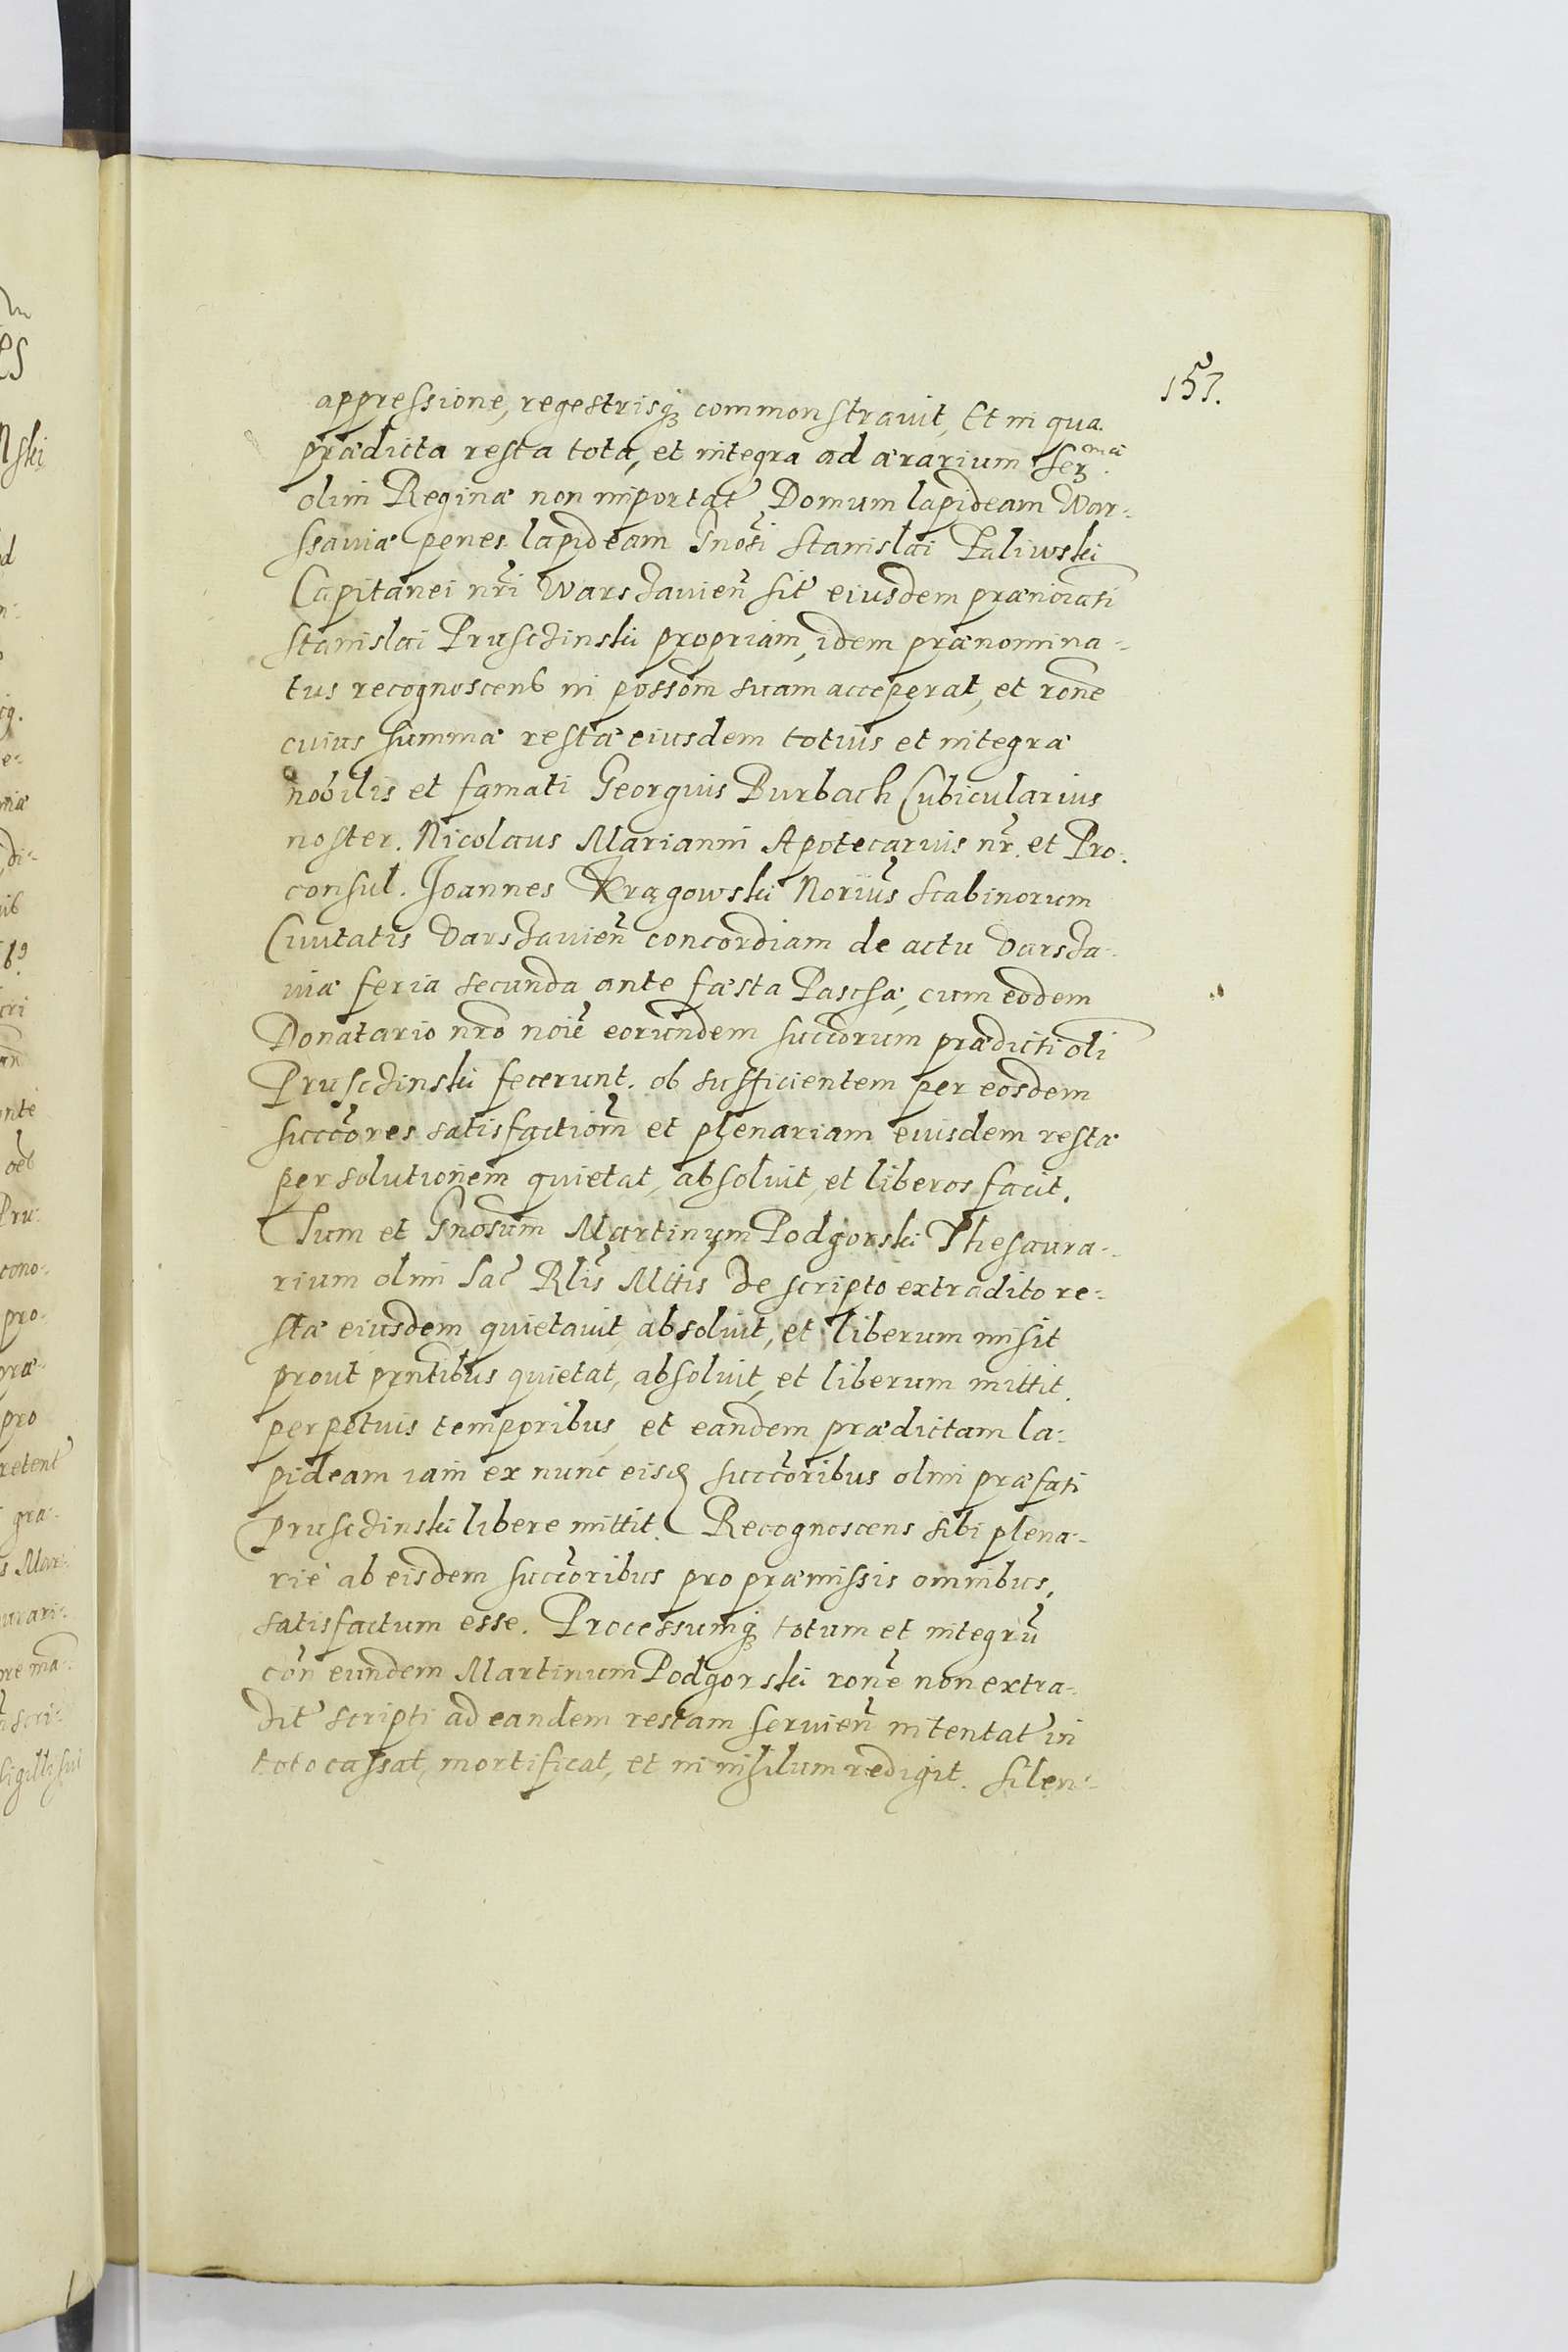 157.
appressione, regestrisq₃ commonstravit, Et in qua
prædicta resta tota, et integra ad ærarium Serᵐᵃᵉ
olim Reginæ non importat̃ Domum lapideam War-
ssaviæ penes lapideam Gnosi Stanislai Paliwski
Capitanei nr̃i Warszavieñ sit̃ eiusdem prænoiati
Stanislai Prusczinski propriam, idem prænomina-
tus recognoscens in possom̃ suam acceperat, et rone
cuius summæ restæ eiusdem totius et integræ
nobilis et famati Georgius Burbach Cubicularius
noster. Nicolaus Marianni Apotecarius nr̃. et Pro-
consul. Joannes Drągowski Norius Scabinorum
Civitatis Varszavieñ concordiam de actu Varsza-
viæ feria secunda ante fæsta Paschæ, cum eodem
Donatario nr̃o noiẽ eorundem succorum prædicti oli
Prusczinski fecerunt. ob sufficientem per eosdem
succcores satisfactiom̃ et plenariam eiusdem restæ
persolutionem quietat, absolvit, et liberos facit.
Tum et Gnosum Martinum Podgorski Thesaura-
rium olim Sac̃ Rlis Mttis de scripto extradito re-
stæ eiusdem quietavit, absolvit, et liberum misit
prout prntibus quietat, absolvit, et liberum mittit.
perpetuis temporibus, et eandem prædictam la-
pideam iam ex nunc eisd succcoribus olim præfati
Prusczinski libere mittit. Recognoscens sibi plena-
rie ab eisdem succcoribus pro præmissis omnibus,
satisfactum esse. Processumq₃ totum et integrũ
con̄ eundem Martinum Podgorski ronẽ non extra-
dit̃ scripti ad eandem restam servieñ intentat̃ in
toto cassat, mortificat, et in nihilum redigit. Silen-